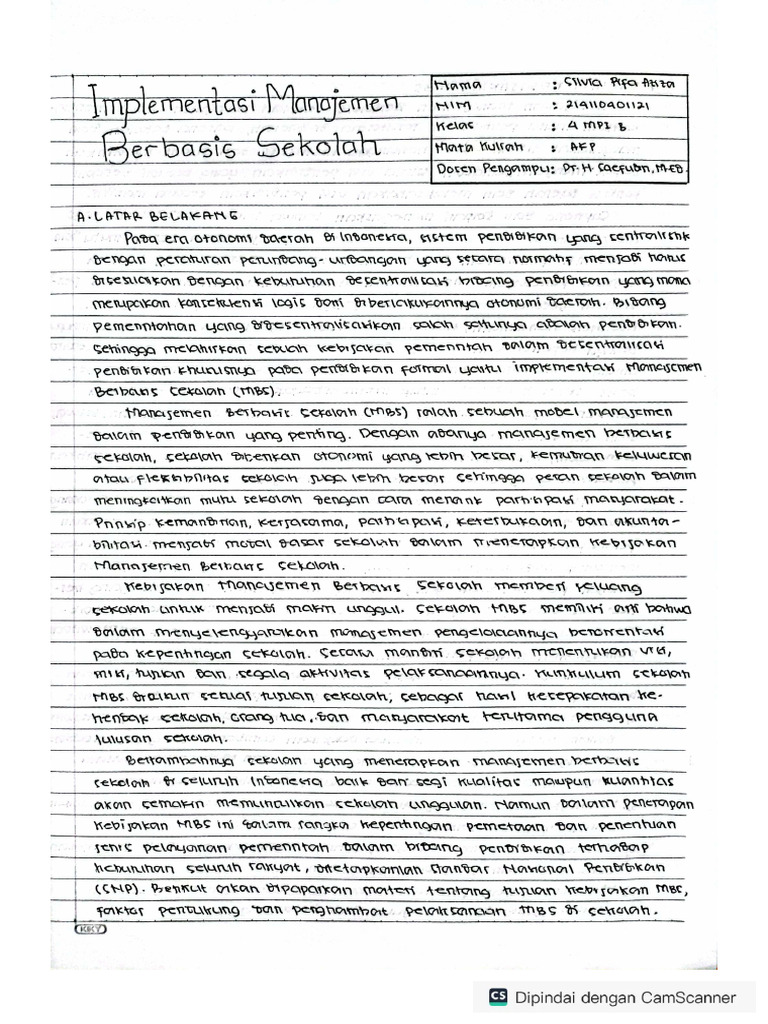 Implementasi Manajemen
Berbasis Sekolah
Nama : Silvia Rifa Aziza
NIM : 214110401121
Kelas : 4 MPI B
Mata Kuliah : AKP
Dosen Pengampu : Dr. H. Saefudin, M.ED.
A. LATAR BELAKANG
Pada era otonomi daerah di Indonesia, sistem pendidikan yang sentralistik
dengan peraturan perundang-undangan yang secara normatif menjadi harus
disesuaikan dengan kebutuhan desentralisasi bidang pendidikan yang mana
merupakan konsekuensi logis dari diberlakukannya otonomi daerah. Bidang
pemerintahan yang didesentralisasikan salah satunya adalah pendidikan.
Sehingga melahirkan sebuah kebijakan pemerintah dalam desentralisasi
pendidikan khususnya pada pendidikan formal yaitu implementasi Manajemen
Berbasis Sekolah (MBS).
Manajemen Berbasis Sekolah (MBS) ialah sebuah model manajemen
dalam pendidikan yang penting. Dengan adanya manajemen berbasis
sekolah, sekolah diberikan otonomi yang lebih besar, kemudian keluwesan
atau fleksibilitas sekolah juga lebih besar sehingga peran sekolah dalam
meningkatkan mutu sekolah dengan cara menarik partisipasi masyarakat.
Prinsip kemandirian, kerjasama, partisipasi, keterbukaan, dan akunta-
bilitasi menjadi modal dasar sekolah dalam menerapkan kebijakan
Manajemen Berbasis Sekolah.
Kebijakan Manajemen Berbasis Sekolah memberi peluang
sekolah untuk menjadi makin unggul. Sekolah MBS memiliki arti bahwa
dalam menyelenggarakan manajemen pengelolaannya berorientasi
pada kepentingan sekolah. Secara mandiri sekolah menentukan visi,
misi, tujuan dan segala aktivitas pelaksanaannya. Kurikulum sekolah
MBS disusun sesuai tujuan sekolah, sebagai hasil kesepakatan ke-
hendak sekolah, orang tua, dan masyarakat terutama pengguna
lulusan sekolah.
Bertambahnya sekolah yang menerapkan manajemen berbasis
sekolah di seluruh Indonesia baik dari segi kualitas maupun kuantitas
akan semakin memunculkan sekolah unggulan. Namun dalam penerapan
kebijakan MBS ini dalam rangka kepentingan pemetaan dan penentuan
jenis pelayanan pemerintah dalam bidang pendidikan terhadap
kebutuhan seluruh rakyat, ditetapkanlah Standar Nasional Pendidikan
(SNP). Berikut akan dipaparkan materi tentang tujuan kebijakan MBS,
faktor pendukung dan penghambat pelaksanaan MBS di sekolah.
KKY
CS Dipindai dengan CamScanner